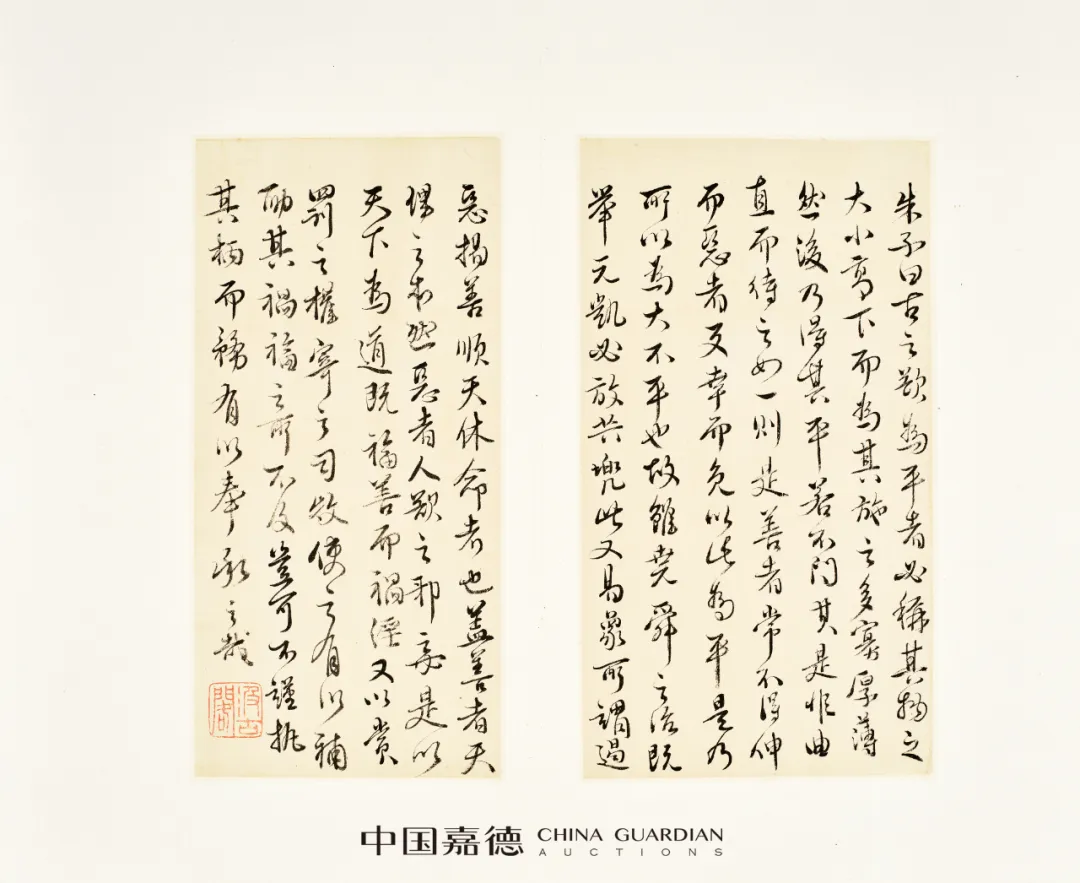 朱子曰古之欲為平者必稱其物之
大小高下而為其施之多寡厚薄
然後乃得其平若不問其是非曲
直而待之如一則是善者常不得伸
而惡者反幸而免以此為平是乃
所以為大不平也故雖堯舜之治既
舉元凱必放共兜此又易象所謂遏
惡揚善順天休命者也蓋善者天
理之本然惡者人欲之邪妄是以
天下為道既福善而禍淫又以賞
罰之權寄之司牧使之有以補
助其禍福之所不及豈可不謹執
其柄而務有以奉承之哉
汲古閣
中国嘉德 CHINA GUARDIAN
AUCTIONS